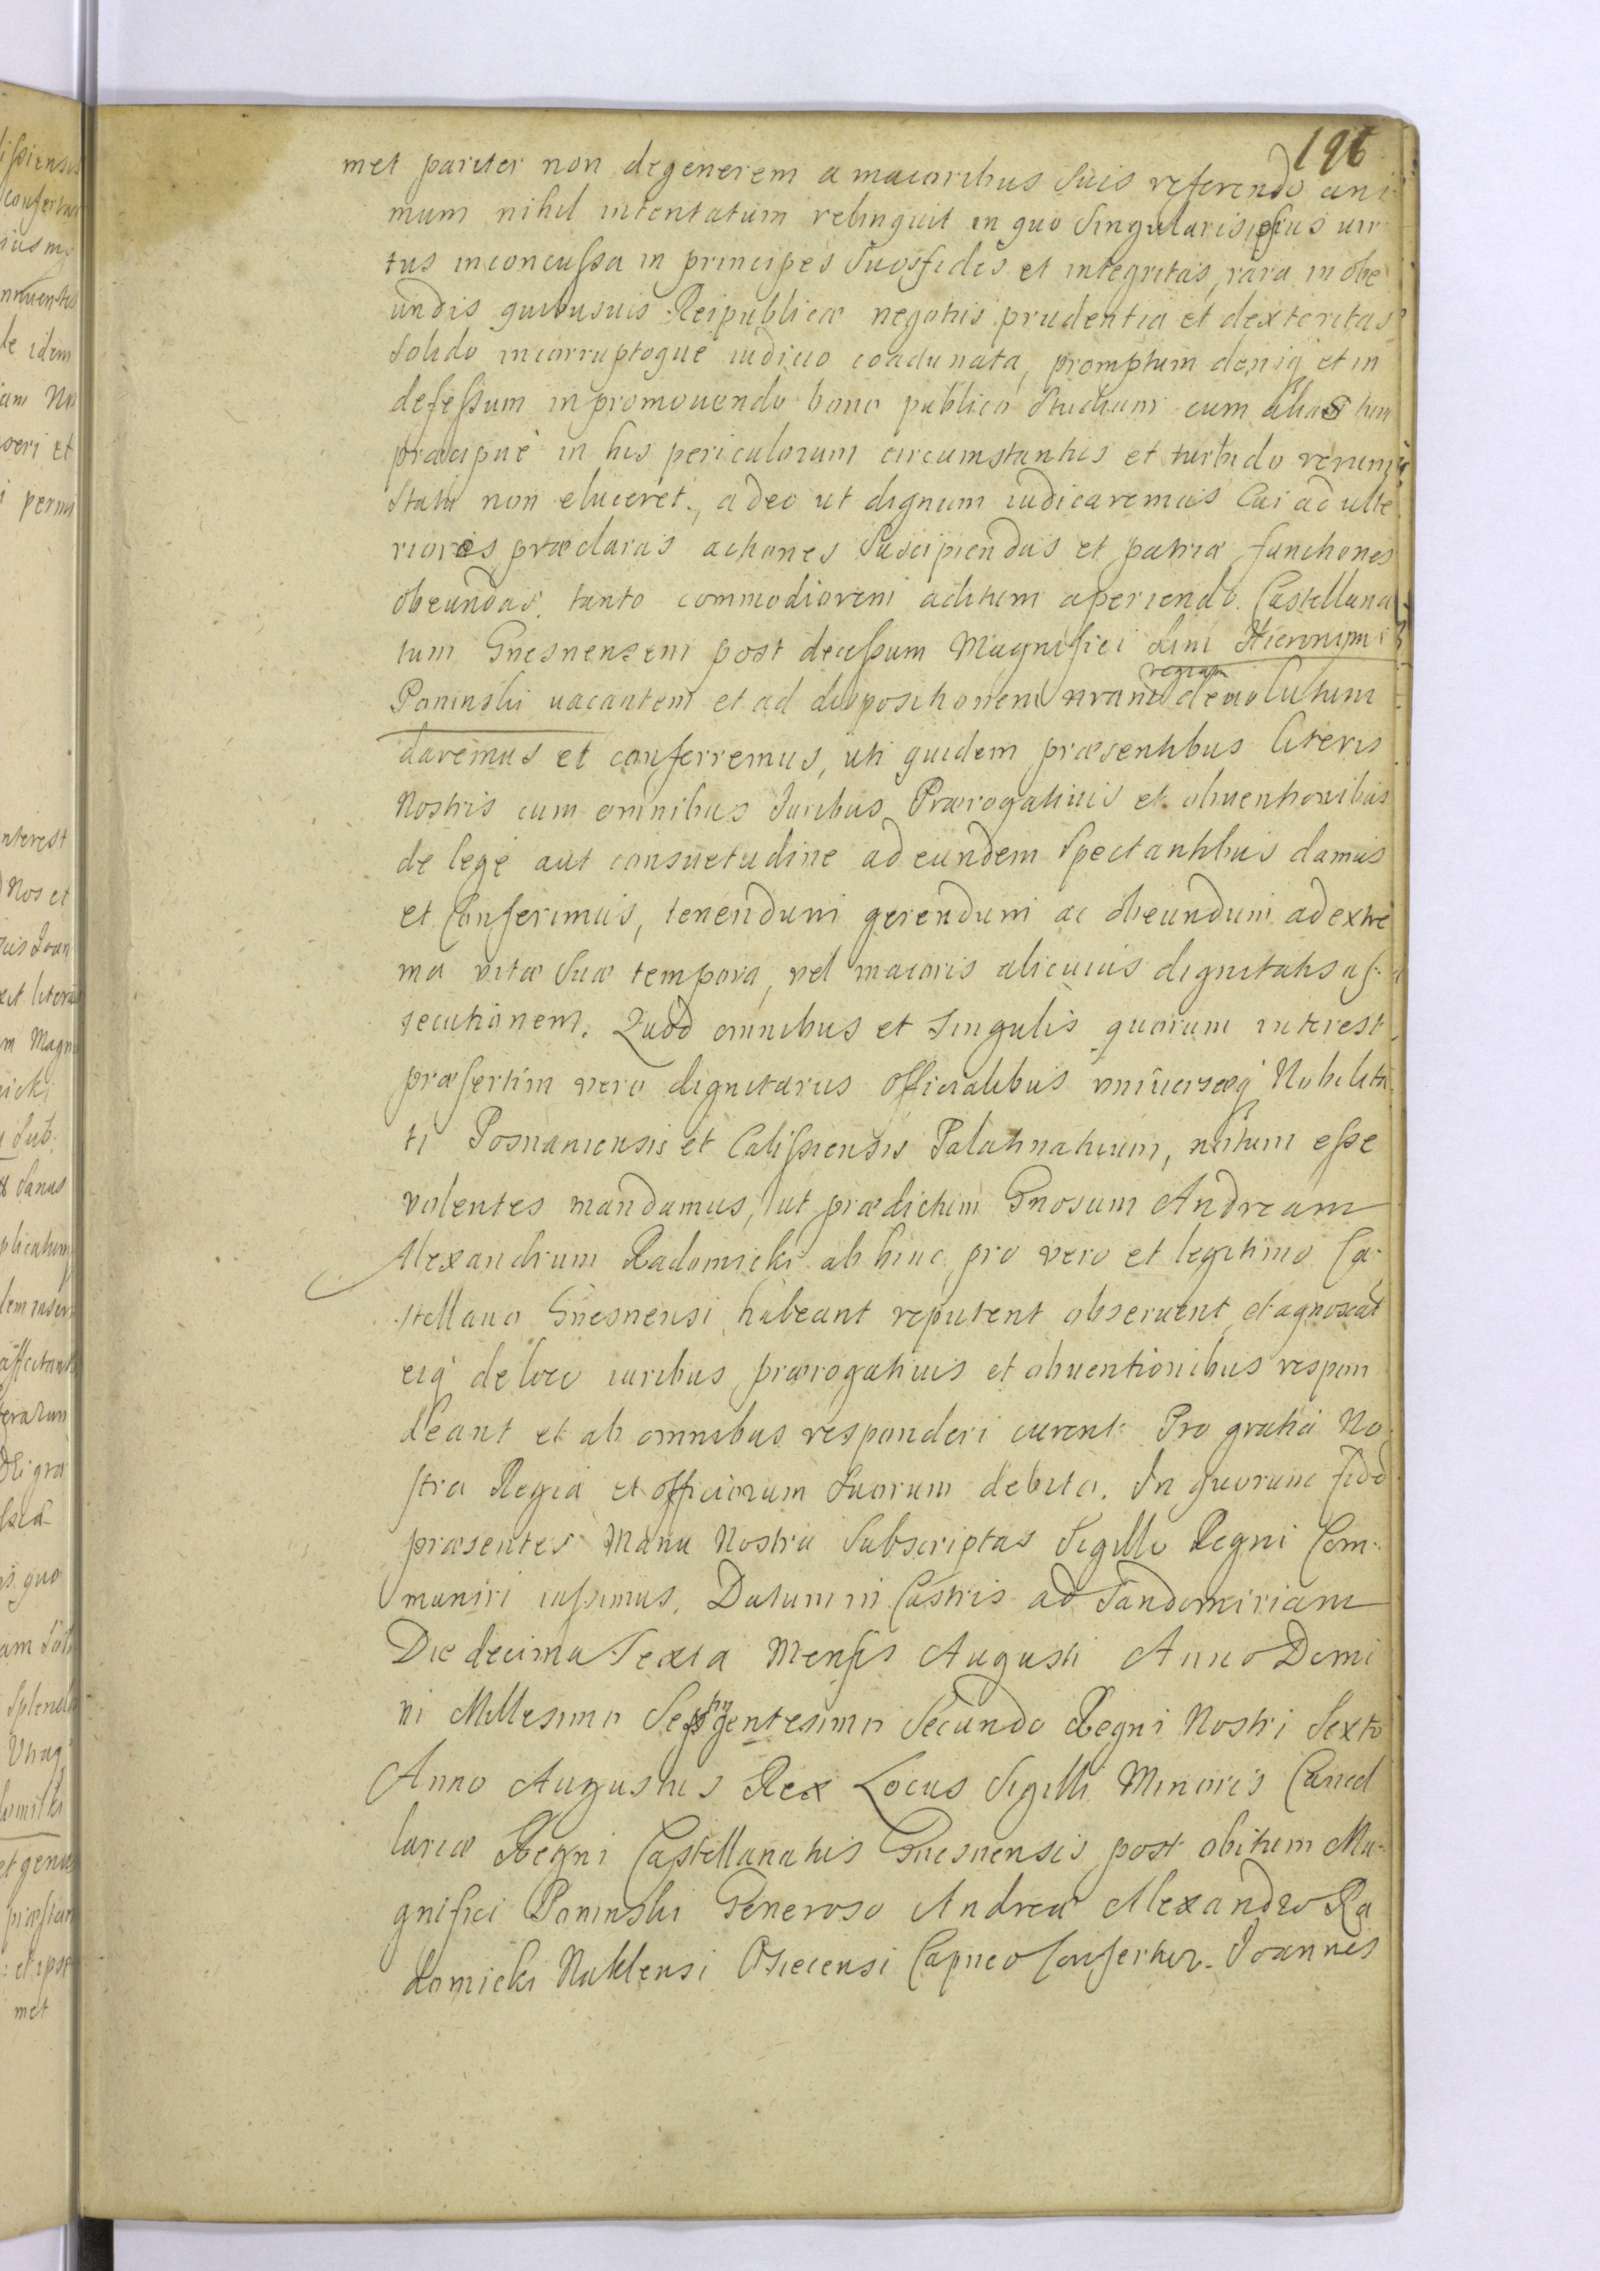 196
met pariter non degenerem a maioribus Suis referendo ani
mum nihil intentatum relinquit in quo Singularis eius vir
tus inconcussa in principes Suos fides et integritas, rara in obe
undis quibusuis Reipublicæ negotiis prudentia et dexteritas
Solido incorruptoque iudicio coadunata, promptum deniq et in
defessum in promouendo bono publico Studium cum alias tum
præcipuè in his periculorum circumstantiis et turbido rerum
Statu non eluceret, adeo ut dignum iudicaremus Cui ad ulte
riores præclaras actiones Suscipiendas et patriæ functiones
obeundas, tanto commodiorem aditum aperiendo. Castellana
tum Gnesnensem post decessum Magnifici dmi Hieronymi
regiam
Poninski uacantem et ad dispositionem nram deuolutum
daremus et conferremus, uti quidem præsentibus literis
Nostris cum omnibus Juribus Prærogatiuis et obuentionibus
de lege aut consuetudine ad eundem Spectantibus damus
et Conferimus, tenendum gerendum ac obeundum ad extre
ma vitæ Suæ tempora, vel maioris alicuius dignitatis as
secutionem. Quod omnibus et Singulis quorum interest
præsertim vero dignitariis Officialibus vniuersæq Nobilita
ti Posnaniensis et Calissiensis Palatinatuum, notum esse
volentes mandamus, ut prædictum Gnosum Andream
Alexandrum Radomicki ab hinc, pro vero et legitimo Ca
stellano Gnesnensi habeant reputent obseruent et agnoscat
eiq de loco iuribus prærogatiuis et obuentionibus respon
deant et ab omnibus responderi curent. Pro gratia No
stra Regia et officiorum Suorum debito. In quorum fide
præsentes Manu Nostra Subscriptas Sigillo Regni Com
muniri iussimus. Datum in Castris ad Sandomiriam
Die decima Sexta Mensis Augusti Anno Domi
ni Millesimo Septingentesimo Secundo Regni Nostri Sexto
Anno Augustus Rex Locus Sigilli Minoris Cancel
lariæ Regni Castellanatus Gnesnensis post obitum Ma
gnifici Poninski Generoso Andreæ Alexandro Ra
domicki Naklensi Osiecensi Capneo Confertur. Joannes